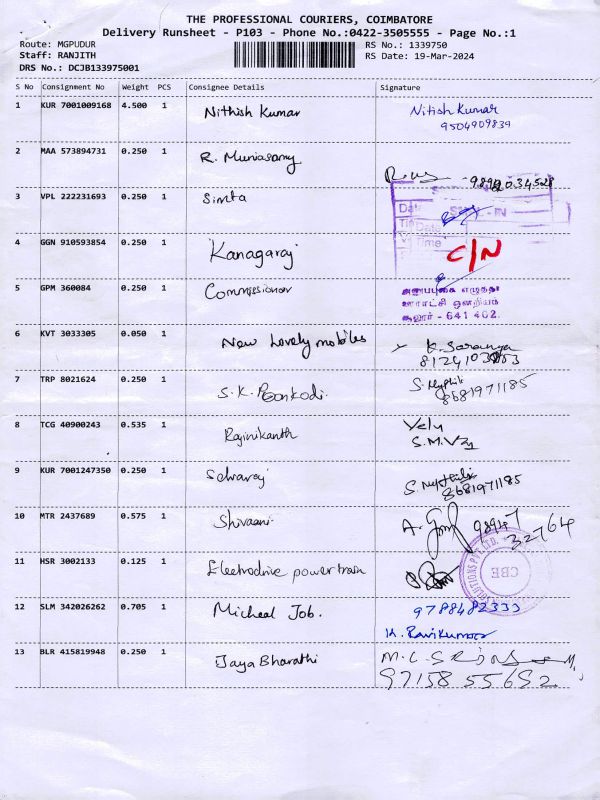 THE PROFESSIONAL COURIERS, COIMBATORE
Delivery Runsheet - P103 - Phone No.:0422-3505555 - Page No.:1
Route: MGPUDUR RS No.: 1339750
Staff: RANJITH RS Date: 19-Mar-2024
DRS No.: DCJB133975001
S No Consignment No Weight PCS Consignee Details Signature
1 KUR 7001009168 4.500 1 Nithish Kumar Nitish Kumar
9504909839
2 MAA 573894731 0.250 1 R. Muniasamy
3 VPL 222231693 0.250 1 Simta
Date
Time
4 GGN 910593854 0.250 1 Kanagaraj C/N
5 GPM 360084 0.250 1 Commissioner
சூலூர் - 641 402.
6 KVT 3033305 0.050 1 New Lovely mobiles K. Saranya
7 TRP 8021624 0.250 1 S.K. Poonkodi.
8681971185
8 TCG 40900243 0.535 1 Rajinikanth Velu
9 KUR 7001247350 0.250 1 Selvaraj
8681971185
10 MTR 2437689 0.575 1 Shivaani
11 HSR 3002133 0.125 1 Electrodrive powertrain
CBE
12 SLM 342026262 0.705 1 Micheal Job. 9788482333
K. Ravikumar
13 BLR 415819948 0.250 1 Jaya Bharathi
97158 55652